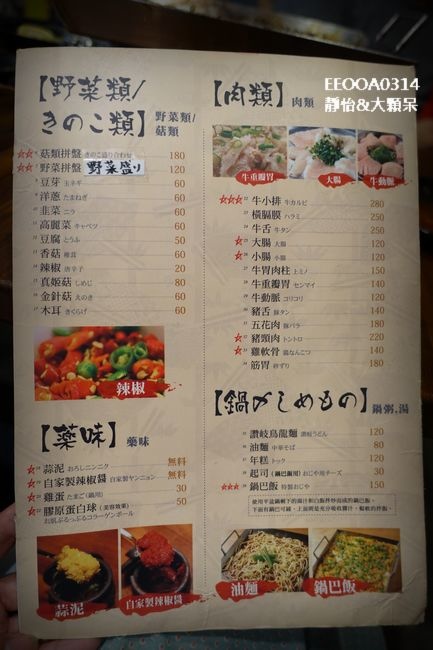 EEOOA0314
靜怡&大顆呆
【野菜類/
きのこ類】 野菜類/
菇類
菇類拼盤 きのこ盛り合わせ 180
野菜拼盤 野菜盛り 120
豆芽 60
洋蔥 玉ねぎ 60
韭菜 ニラ 60
高麗菜 キャベツ 60
豆腐 とうふ 50
香菇 椎茸 60
辣椒 唐辛子 20
真姬菇 しめじ 80
金針菇 えのき 60
木耳 きくらげ 60
辣椒
【薬味】 藥味
蒜泥 おろしニンニク 無料
自家製辣椒醬 自家製ヤンニョン 無料
雞蛋 たまご (鍋用) 30
膠原蛋白球 (美容效果) 50
お肌ぷるっぷるコラーゲンボール
蒜泥
自家製辣椒醬
【肉類】 肉類
牛重瓣胃
大腸
牛動脈
牛小排 牛カルビ 280
橫膈膜 ハラミ 250
牛舌 牛タン 250
大腸 大腸 120
小腸 小腸 120
牛胃肉柱 上ミノ 150
牛重瓣胃 センマイ 140
牛動脈 コリコリ 120
豬舌 豚タン 140
五花肉 豚バラ 180
豬頸肉 トントロ 220
雞軟骨 鶏なんこつ 140
筋胃 砂ずり 100
【鍋がしめもの】 鍋粥,湯
讚岐烏龍麵 讃岐うどん 120
油麵 中華そば 80
年糕 トック 120
起司 (鍋巴飯用) おじや用チーズ 30
鍋巴飯 特製おじや 150
使用平盆鍋剩下的醬汁和白飯拌炒而成的鍋巴飯。
油麵
鍋巴飯